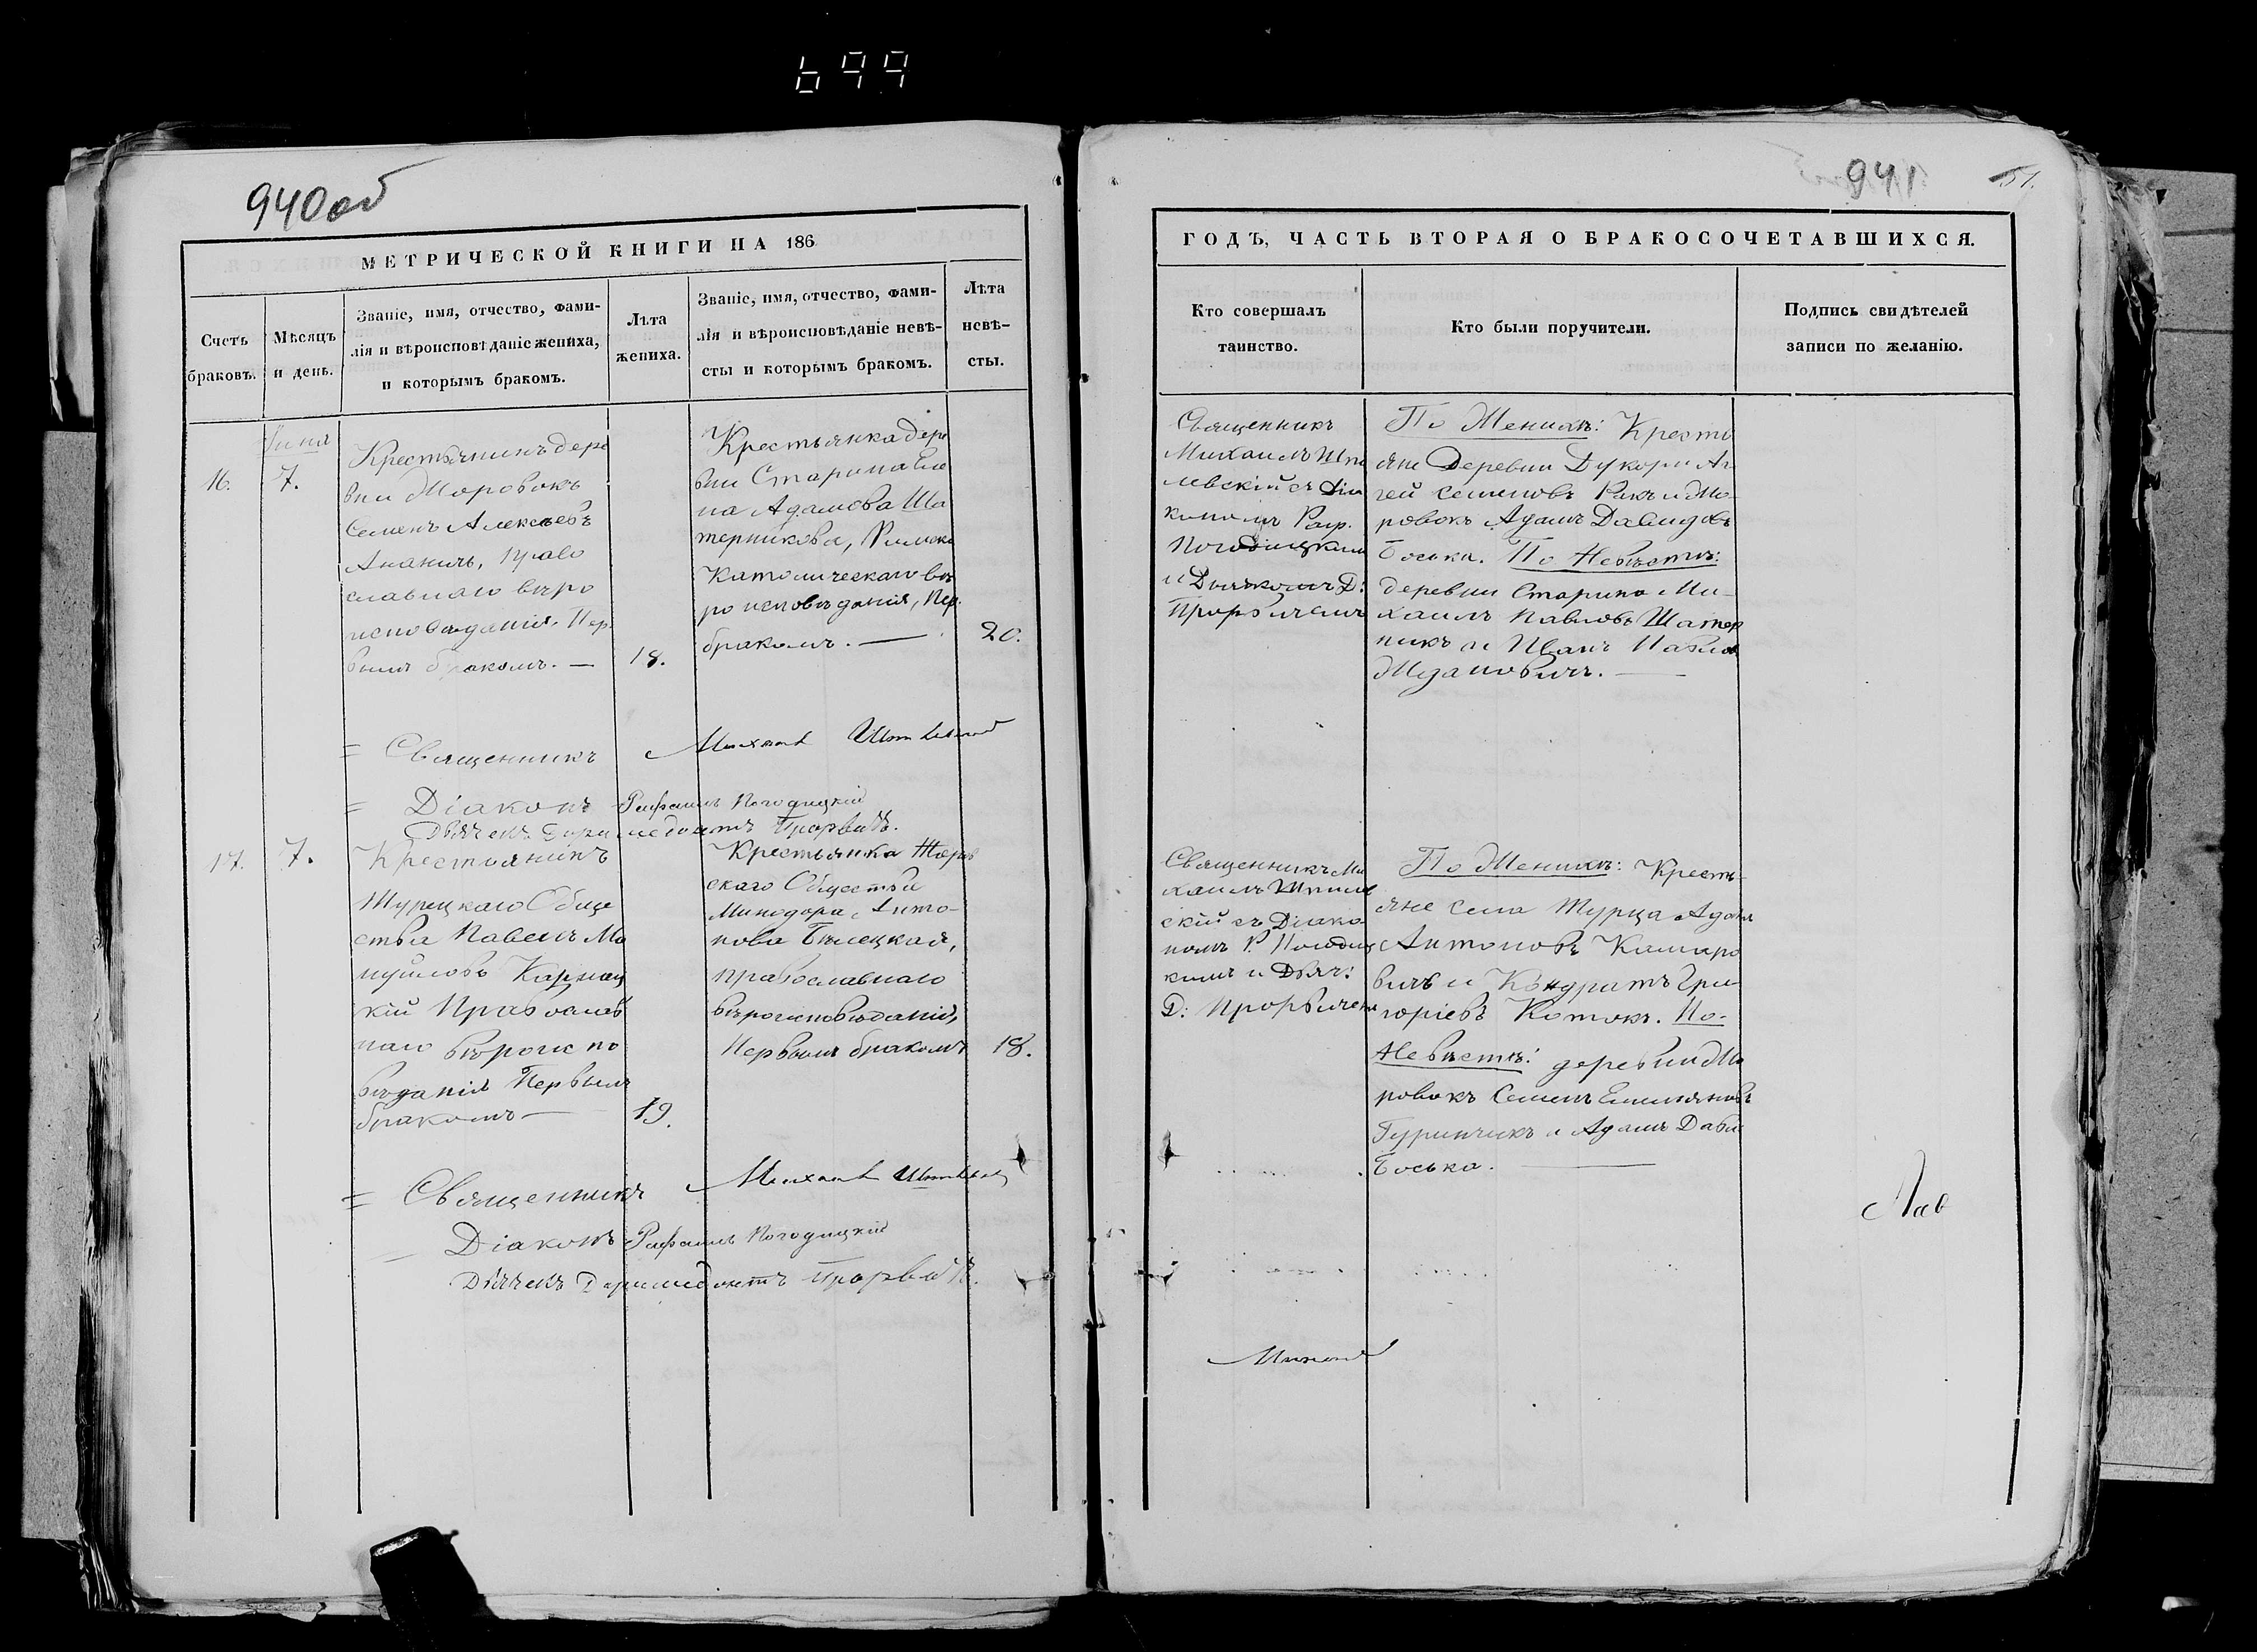 699
940об
МЕТРИЧЕСКОЙ КНИГИ НА 186
Счетъ
браковъ.
Мѣсяцъ
и день.
Званіе, имя, отчество, фами-
лія и вѣроисповѣданіе жениха,
и которымъ бракомъ.
Лѣта
жениха.
Званіе, имя, отчество, фами-
лія и вѣроисповѣданіе невѣ-
сты и которымъ бракомъ.
Лѣта
невѣ-
сты.
16.
7.
Крестьянинъ дере
вниМоровокъ
Семенъ Алексѣевъ
Ананичъ, Право
славнаго вѣро
исповѣданія, Пер
вымъ бракомъ. —
18.
Крестьянка дере
вни Старина Еле
на Адамова Ша
терникова, Римско
Католическаго вѣ
роисповѣданія, Пер.
бракомъ. —
20.
= Священникъ Михаилъ
= Діаконъ Рафаилъ Погодицкій
Дьячекъ Прорвичъ.
17.
7.
Крестьянинъ
Турецкаго Обще
ства Павелъ Ма
нуйловъ
кій Православ
наго вѣроиспо
вѣданія Первымъ
бракомъ —
19.
Крестьянка
скаго Общества
Минодора Анто-
нова Бѣлецкая,
православнаго
вѣроисповѣданія,
Первымъ бракомъ
18.
= Священникъ Михаилъ
Діаконъ Рафаилъ Погодицкій
Дьячекъ Доримедонтъ Прорвичъ.
941
51.
ГОДЪ, ЧАСТЬ ВТОРАЯ О БРАКОСОЧЕТАВШИХСЯ.
Кто совершалъ
таинство.
Кто были поручители.
Подпись свидѣтелей
записи по желанію.
Священникъ
Михаилъ Шпи
левскій съ Діа
кономъ Раф.
Погодицкимъ
и Дьячкомъ Д:
Прорвичемъ
По Женихѣ: Кресть
яне Деревни Дукори Ан
гей Семеновъ Ракъ и Мо-
ровокъ Адамъ Давидовъ
Боська. По Невѣстѣ:
деревни Старина Ми-
хаилъ Павловъ Шатер
никъ и Иванъ Павлов
Ждановичъ. —
Священникъ Ми
хаилъ Шпилев
скій съ Діако
номъ Р. Погодиц
кимъ и Дьяч:
Д: Прорвичемъ
По Женихѣ: Кресть-
яне села Турца Адамъ
Антоновъ Камаро
вичъ и Кондратъ Гри
горіевъ Котокъ. По-
Невѣстѣ: деревни Мо
ровокъ Семенъ Емельяновъ
Гуринчикъ и Адамъ Дави
Боська. —